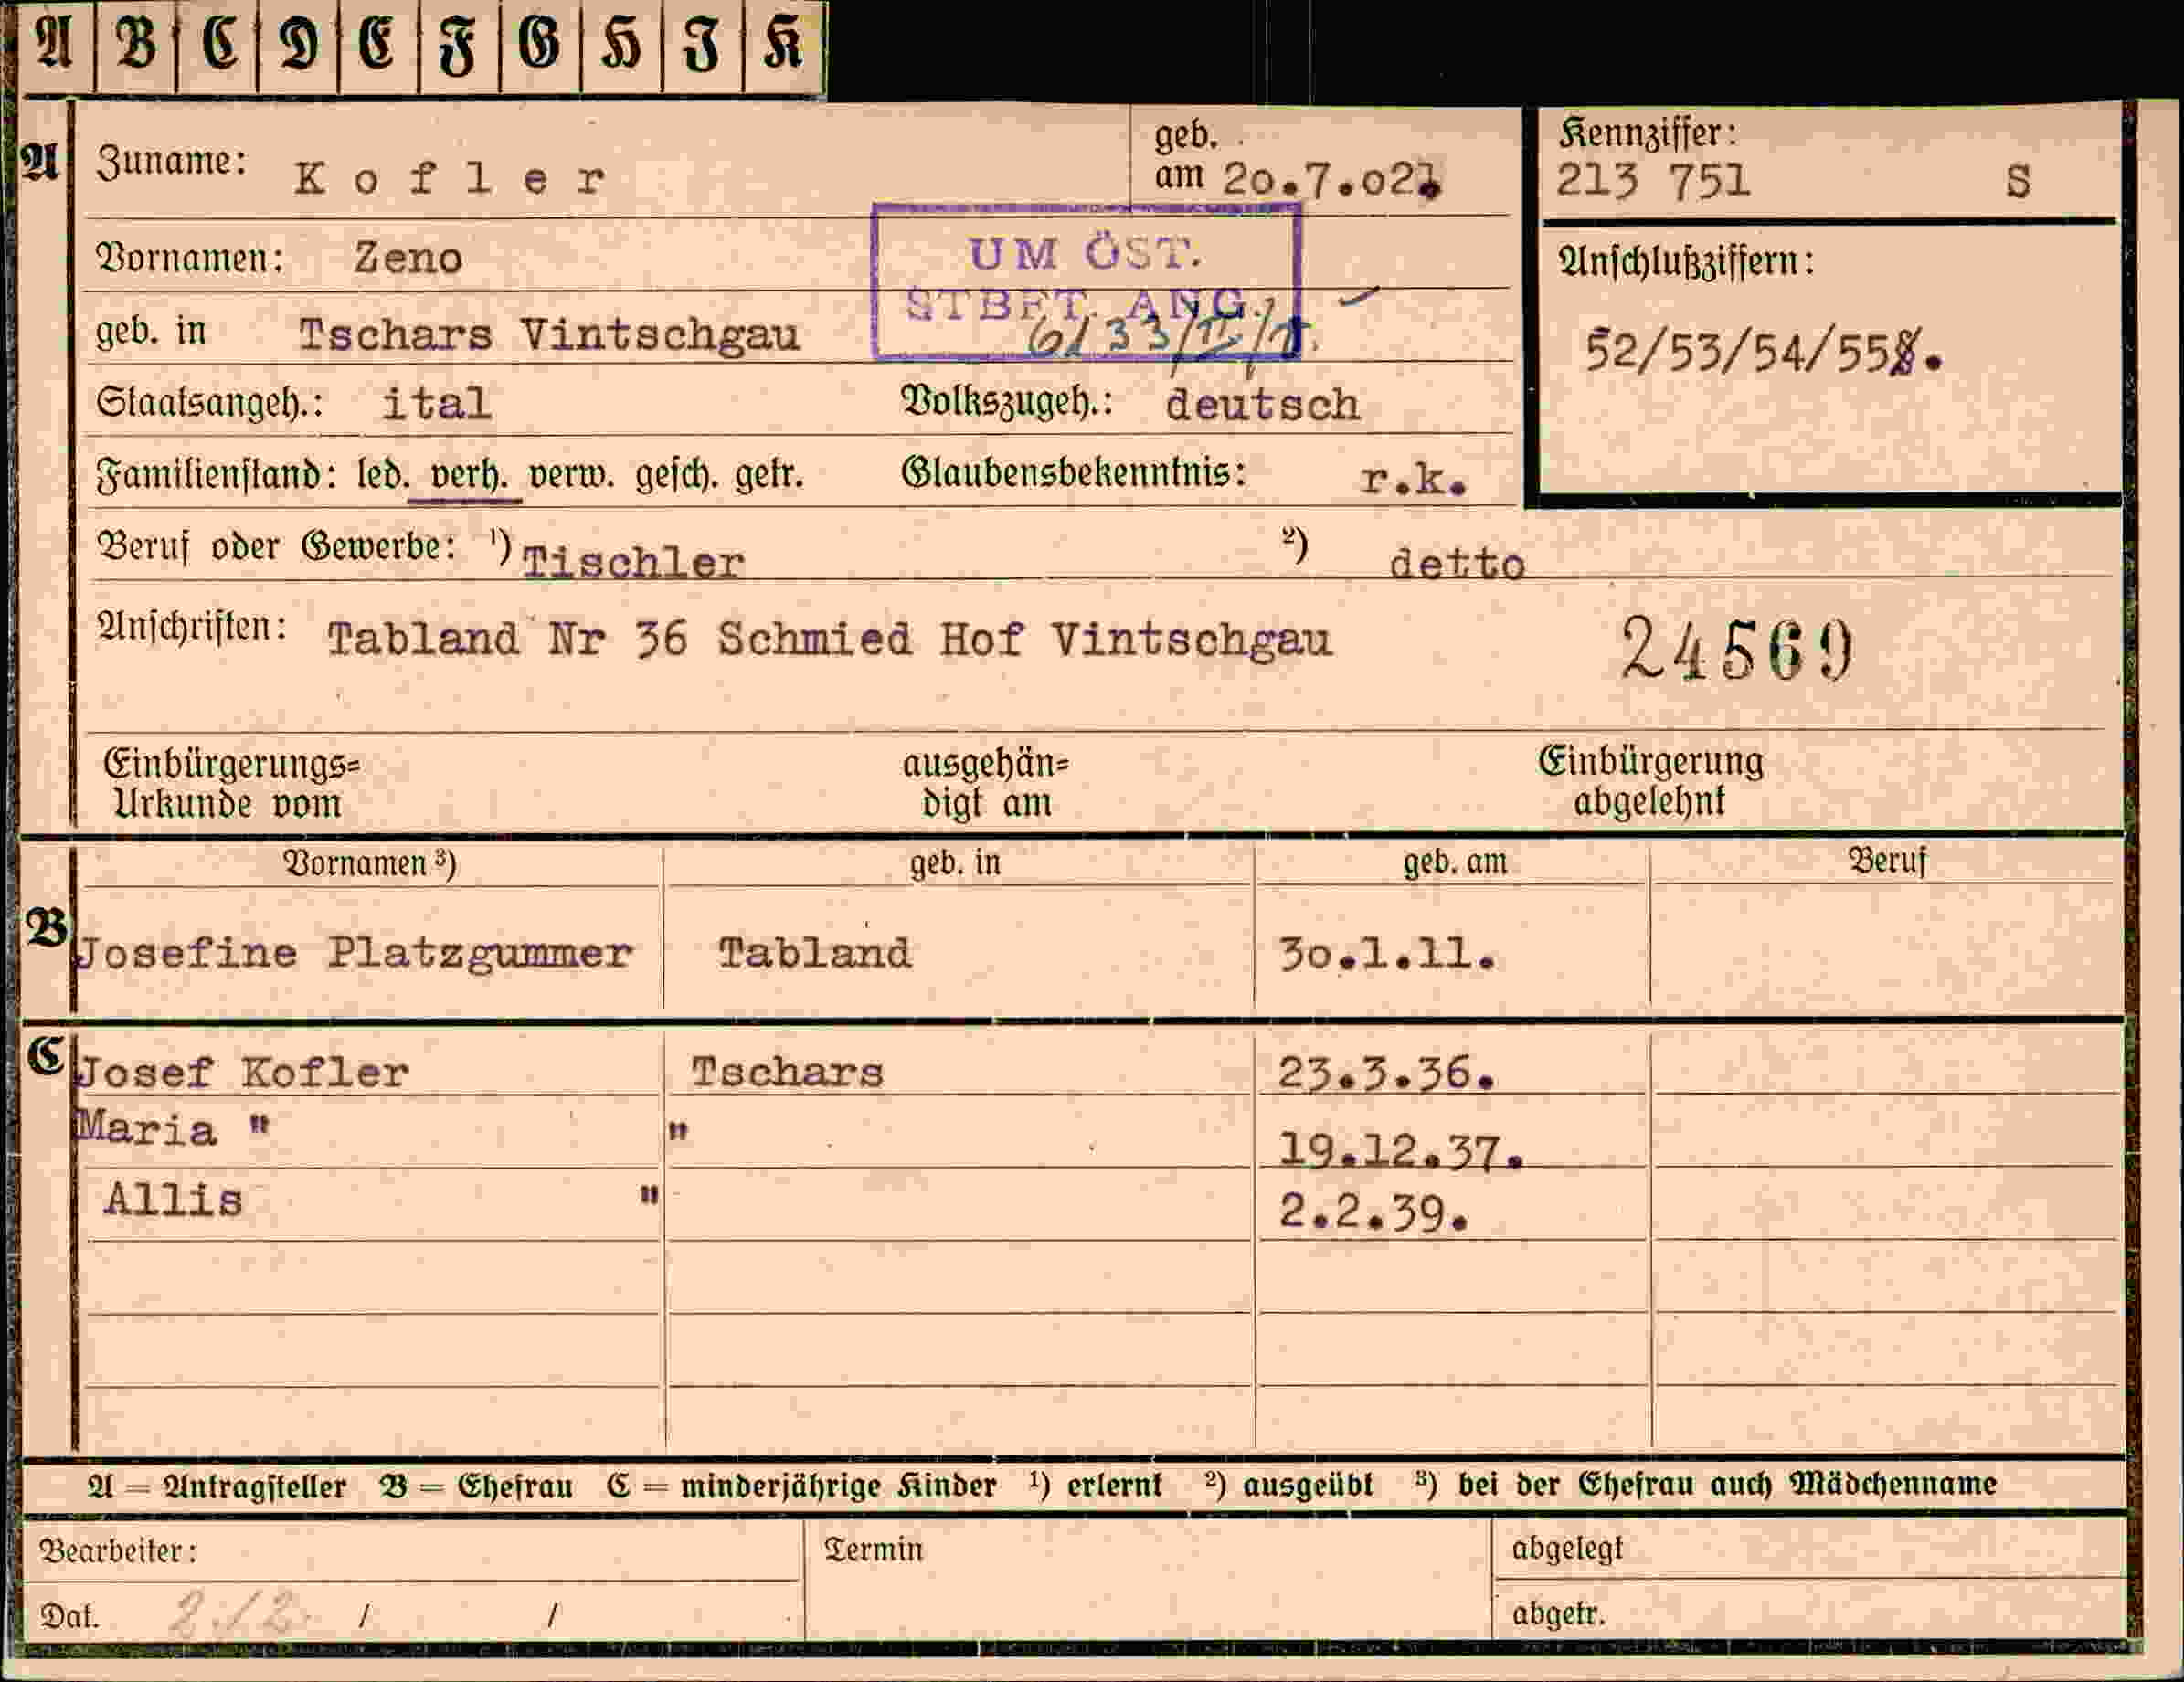 A B C D E F G H I K
A
Zuname: Kofler
geb. am 20.7.02
Kennziffer:
213 751 S
Vornamen: Zeno
UM ÖST.
STBET. ANG.
Anschlußziffern:
52/53/54/55.
geb. in Tschars Vintschgau
Staatsangeh.: ital Volkszugeh.: deutsch
Familienstand: led. verh. verw. gesch. getr. Glaubensbekenntnis: r.k.
Beruf oder Gewerbe: ¹) Tischler ²) detto
Anschriften: Tabland Nr 36 Schmied Hof Vintschgau 24569
Einbürgerungs= ausgehän= Einbürgerung
Urkunde vom digt am abgelehnt
Vornamen ³) geb. in geb. am Beruf
B
Josefine Platzgummer Tabland 30.1.11.
C
Josef Kofler Tschars 23.3.36.
Maria " " 19.12.37.
Allis " 2.2.39.
A = Antragsteller B = Ehefrau C = minderjährige Kinder ¹) erlernt ²) ausgeübt ³) bei der Ehefrau auch Mädchenname
Bearbeiter: Termin abgelegt
Dat. 2./2. / / abgetr.